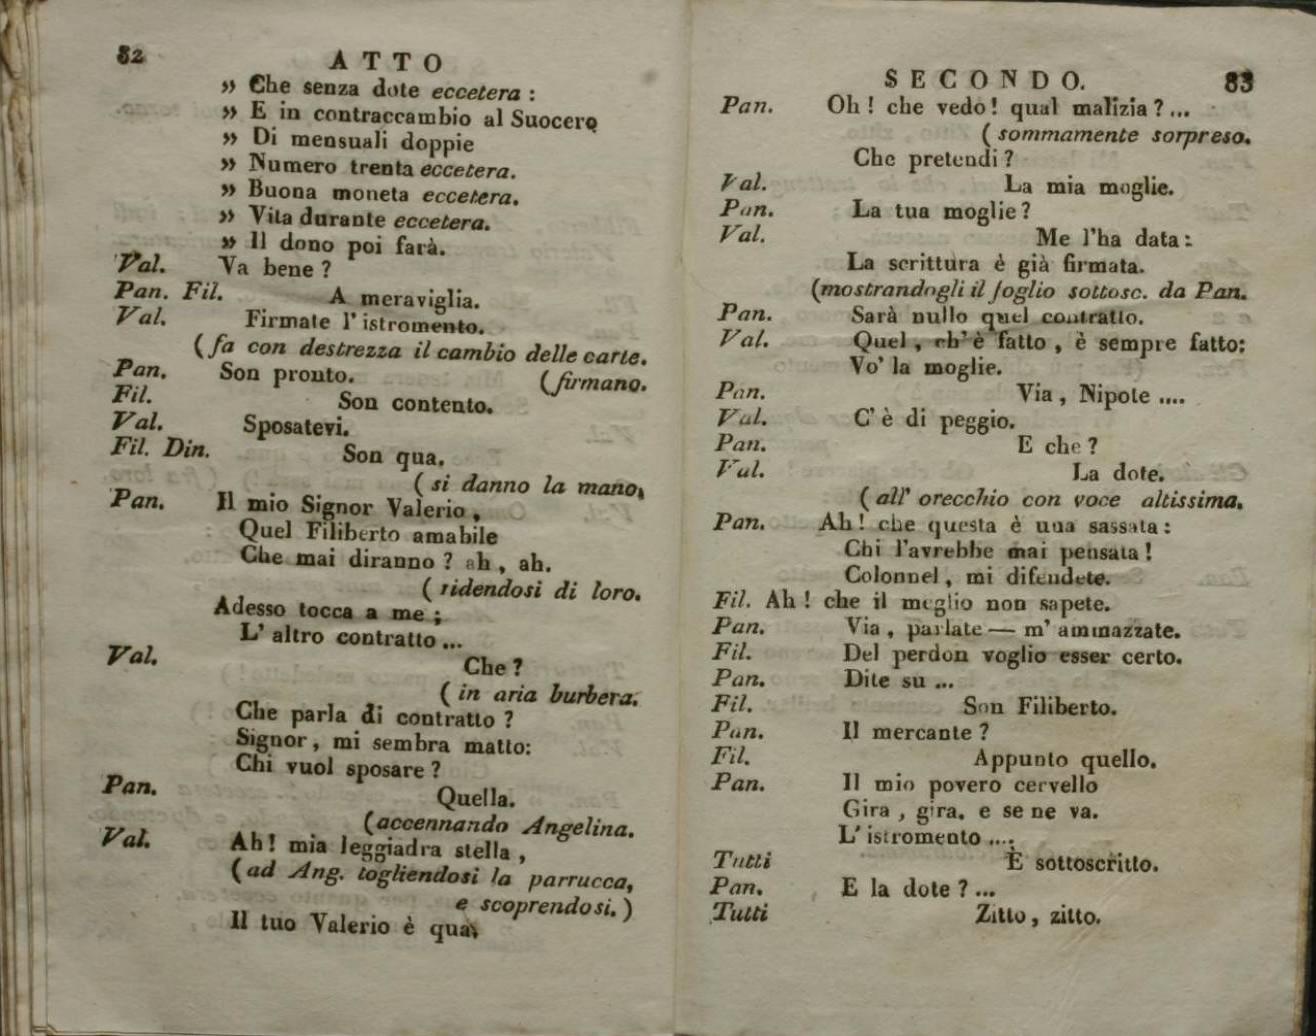 82
ATTO
» Che senza dote eccetera :
» E in contraccambio al Suocero
» Di mensuali doppie
» Numero trenta eccetera.
» Buona moneta eccetera.
» Vita durante eccetera.
» Il dono poi farà.
Val. Va bene ?
Pan. Fil. A meraviglia.
Val. Firmate l' istromento.
( fa con destrezza il cambio delle carte.
Pan. Son pronto. (firmano.
Fil. Son contento.
Val. Sposatevi.
Fil. Din. Son qua.
( si danno la mano,
Pan. Il mio Signor Valerio ,
Quel Filiberto amabile
Che mai diranno ? ah , ah.
( ridendosi di loro.
Adesso tocca a me ;
L' altro contratto ...
Val. Che ?
( in aria burbera.
Che parla di contratto ?
Signor , mi sembra matto:
Chi vuol sposare ?
Pan. Quella.
(accennando Angelina.
Val. Ah! mia leggiadra stella ,
( ad Ang. togliendosi la parrucca,
e scoprendosi. )
Il tuo Valerio è qua,
SECONDO. 83
Pan. Oh ! che vedo ! qual malizia ? ...
( sommamente sorpreso.
Che pretendi ?
Val. La mia moglie.
Pan. La tua moglie ?
Val. Me l'ha data :
La scrittura è già firmata.
(mostrandogli il foglio sottosc. da Pan.
Pan. Sarà nullo quel contratto.
Val. Quel , ch' è fatto , è sempre fatto:
Vo' la moglie.
Pan. Via , Nipote ....
Val. C' è di peggio.
Pan. E che ?
Val. La dote.
( all' orecchio con voce altissima.
Pan. Ah ! che questa è una sassata :
Chi l'avrebbe mai pensata !
Colonnel , mi difendete.
Fil. Ah ! che il meglio non sapete.
Pan. Via , parlate — m' ammazzate.
Fil. Del perdon voglio esser certo.
Pan. Dite su ...
Fil. Son Filiberto.
Pan. Il mercante ?
Fil. Appunto quello.
Pan. Il mio povero cervello
Gira , gira, e se ne va.
L' istromento ....
Tutti È sottoscritto.
Pan. E la dote ? ...
Tutti Zitto , zitto.